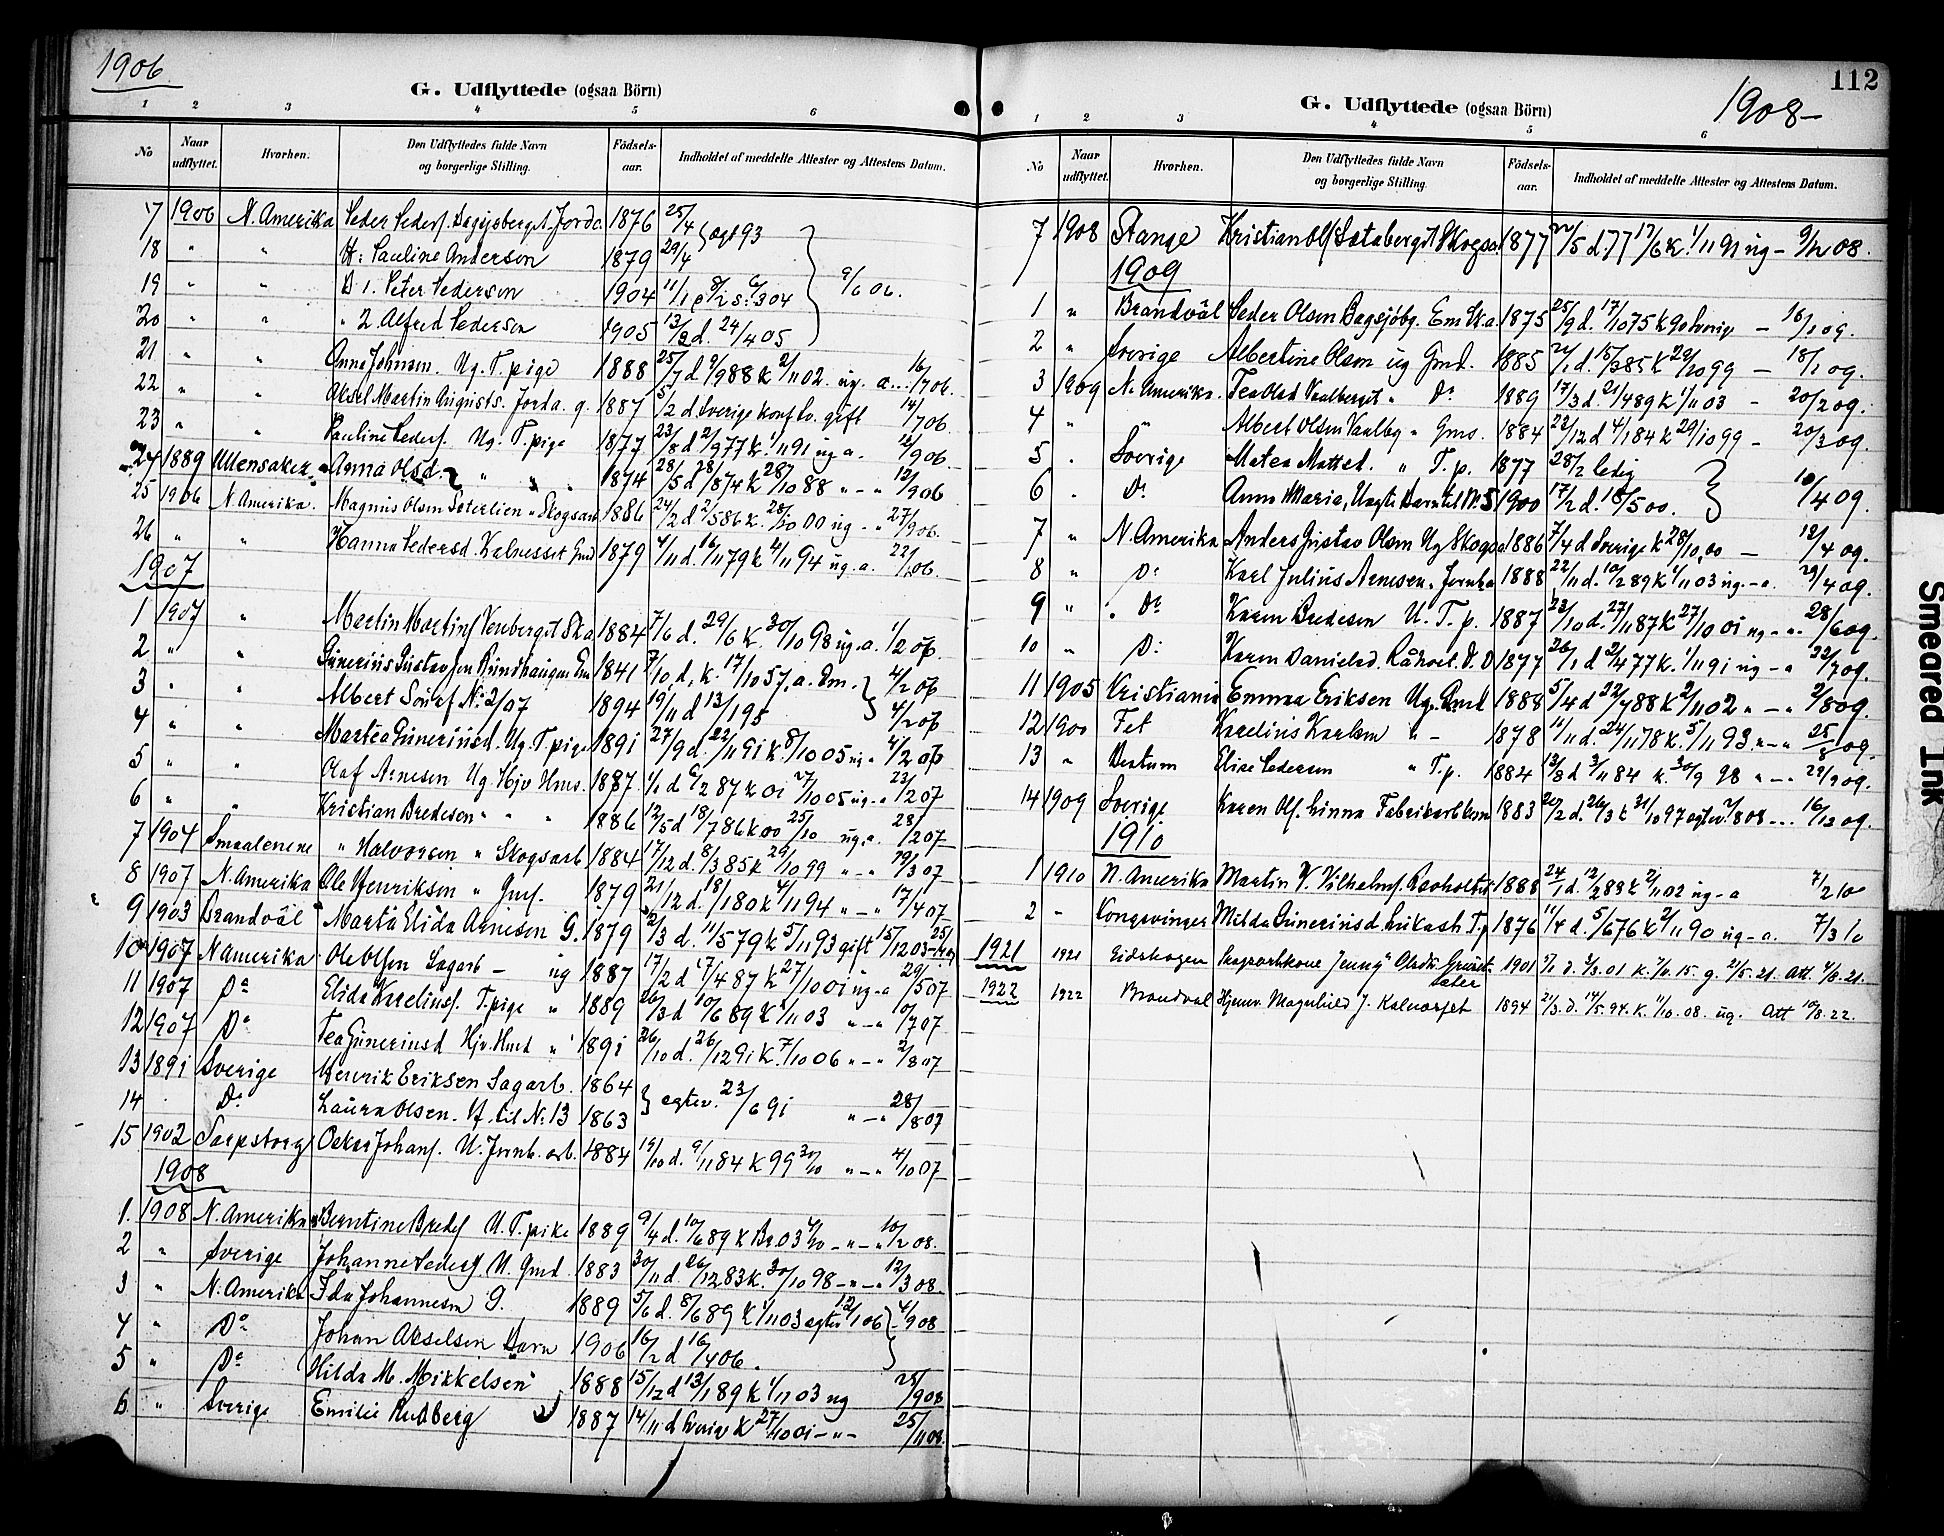 1906
G. Udflyttede (ogsaa Börn)
1 2 3 4 5 6
No Naar udflyttet. Hvorhen. Den Udflyttedes fulde Navn og borgerlige Stilling. Födselsaar. Indholdet af meddelte Attester og Attestens Datum.
7 1906 N. Amerika Peder Peders. Jorda. 1876 25/4 } ægt 93
18 " " H: Pauline Anderson 1879 29/4
19 " " B 1. Peter Pederson 1904 9/6 06.
20 " " " 2 Alfred Pederson 1905 13/2 d. 24/4 05
21 " " Anna Johnsen. Ug. T. pige 1888 25/7 d 2/9 88 k 2/11 02. ug. a. 16/7 06.
22 " " Aksel Martin Augusts. Jorda. g. 1887 5/2 d Sverige konf Sv. gift 14/7 06.
23 " " Pauline Peders. Ug. T. pige 1877 23/8 d 2/9 77 k 1/11 91 ug a. 12/9 06.
24 1889 Ullensaker Anna Olsd. " " 1874 28/5 d 28/8 74 k 28/10 88 " - " 12/9 06
25 1906 N. Amerika. Magnus Olsen Seterlien " Skogsarb 1886 24/2 d 2/5 86 k. 28/10 00 ug. " 27/9 06.
26 " " Hanna Pedersd. Kalnesset Gmd 1879 4/11 d. 16/11 79 k 4/11 94 ug. a. 22/ 06.
1907
1 1907 " Martin Martins. Ska 1884 7/6 d. 29/6 k. 30/10 98 ug. a. 1/2 07.
2 " " Gunerius Gustavsen Em 1841 7/10 d. k. 17/10 57, a. Em. } 4/2 07
3 " " Albert Søn af No 2/07 1894 19/11 d 13/1 95 4/2 07
4 " " Martea Guneriusd. Ug. T. pige 1891 27/9 d. 22/11 91 k 8/10 05 ug. " 4/2 07
5 " " Olaf Arnesen Ug Hjv Hms. 1887. 87 k 01 05 ug. " 23/2 07
6 " " Kristian Bredesen " " " 1886 12/5 d 18/7 86 k 00 25/10 ug. a. 23/2 07
7 1904 Smaalenene " Halvorsen " Skogsarb 1884 17/12 d. 8/3 85 k 29/10 99 " - " 19/3 07
8 1907 N. Amerika Ole Henriksen " Gms. 1879 21/12 d. 18/1 80 k 4/11 94 " - " 17/4 07
9 1903 Brandvål Marta Elida Arnesen G. 1879 2/3 d. 11/5 79 k 5/11 93 gift 15/12 03
10 1907 N Amerika Ole Olsen Sagarb - ug 1887 17/2 d 17/4 87 k 27/10 01 ug - a 29/5 07
11 1907 Do Elida Karelinsd. T. pige " 1889 26/3 d 10/6 89 k 1/11 03 " - " 10/7 07
12 1907 Do Tea Guneriusd Hjv. Hmd " 1891 26/10 d. 26/12 91 k 7/10 06 " - " 2/8 07
13 1891 Sverige Henrik Eriksen Sagarb. 1864
14 Do Laura Olsen. H. til No 13 1863 } ægtev. 23/6 91 " - " 28/8 07
15 1902 Sarpsborg Oskar Johans. U. Jernb. arb. 1884 19/10 d. 9/11 84 k 99 30/10 " - " 4/10 07
1908
1. 1908 N. Amerika Berntine Bredes. U. T. pike 1889 9/4 d. 10/6 89 k Br. 03 4/10 - " - " 10/2 08.
2 " Sverige Johanne Peders. U. Gmd. 1883 30/11 d 26/12 83 k. 30/10 98 - " - " 12/3 08.
3 " N. Amerika Ida Johannesen G. 1889 5/6 d. 8/6 89 k 1/11 03 ægtev 12/1 06 } 4/9 08
4 " Do Johan Akselsen Barn 1906 16/2 d 16/4 06.
5 " Do Hilda M. Mikkelsen 1888 15/12 d 13/1 89 k 1/11 03 ug 25/9 08
6 " Sverige Emilie Rudberg 1887 14/11 d Sverige k 27/10 01 - " - 25/11 08.
112
1908-
G. Udflyttede (ogsaa Börn)
1 2 3 4 5 6
No Naar udflyttet. Hvorhen. Den Udflyttedes fulde Navn og borgerlige Stilling. Födselsaar. Indholdet af meddelte Attester og Attestens Datum.
7 1908 Stange Kristian Ols. Skogsa. 1877 22/5 d. 77 17/6 k. 1/11 91 ug - 9/12 08.
1909
1 " Brandvål Peder Olsen Bagsjöbg. Em Ska. 1875 25/9 d. 17/10 75 k 90 Sverige - 16/1 09.
2 " Sverige Albertine Olsen ug Gmd. 1885 85 k 29/10 99 - 18/1 09.
3 1909 N. Amerika. Tea Olsd Vaalberget " Do 1889 17/3 d. 21/4 89 k 1/11 03 - 20/2 09.
4 " " Albert Olsen Vaalbg " Gms. 1884 22/12 d 4/1 84 k 29/10 99 - 20/3 09.
5 " Sverige Matea Mattsd. " T. p. 1877 28/2 ledig
6 " Do Anna Maria, Uægte Barn til No. 5 1900 17/2 d. 18/5 00. } 10/4 09.
7 " N. Amerika Anders Gustav Olsen Ug Skogsa 1886 7/4 d Sverige k 28/10 00 - 12/4 09.
8 " Do Karl Julius Arnesen. Jernba 1888 22/11 d. 10/2 89 k 1/11 03 ug. - a. 29/4 09.
9 " Do Karen Bredesen U. T. p. 1887 23/10 d. 27/11 87 k 27/10 01 ug - ". 28/6 09.
10 " Do Karen Danielsd. 1877 26/1 d 2/4 77 k. 1/11 91 ug - a 09.
11 1905 Kristiania Emma Eriksen Ug. Gmd 1888 5/4 d 22/7 88 k 2/11 02 " - " 2/8 09.
12 1900 Fet Karelius Karlsen " - 1878 11/11 d. 24/11 78 k. 5/11 93 " - " 25/8 09.
13 " Vestum Elise Pedersen " T. p. 1884 13/8 d 3/11 84 k. 30/9 98 " - " 29/9 09.
14 1909 Sverige Karen Ols. Linna Fabrikarb. 1883 20/2 d. 26/3 k 31/10 97 ægtev. 08 - " 16/12 09.
1910
1 1910 N. Amerika Martin V. Vilhelms. 1888 24/1 d. 12/2 88 k 2/11 02 ug - a 7/2 10
2 - Kongsvinger Milda Guneriusd. T. p 1876 11/4 d. 5/6 76 k 2/11 90 ug - a. 7/3 10
1921 1921 Eidskogen Jenny Olsdtr. 1901 01 k. 15. g. 2/5. 21. Att. 4/8. 21.
1922 1922 Brandval Hjemv. Magnhild J. Kalneset 1894 21/3. d. 14/5. 94. k. 11/10. 08. ug. Att 10/8. 22.
Smeared Ink